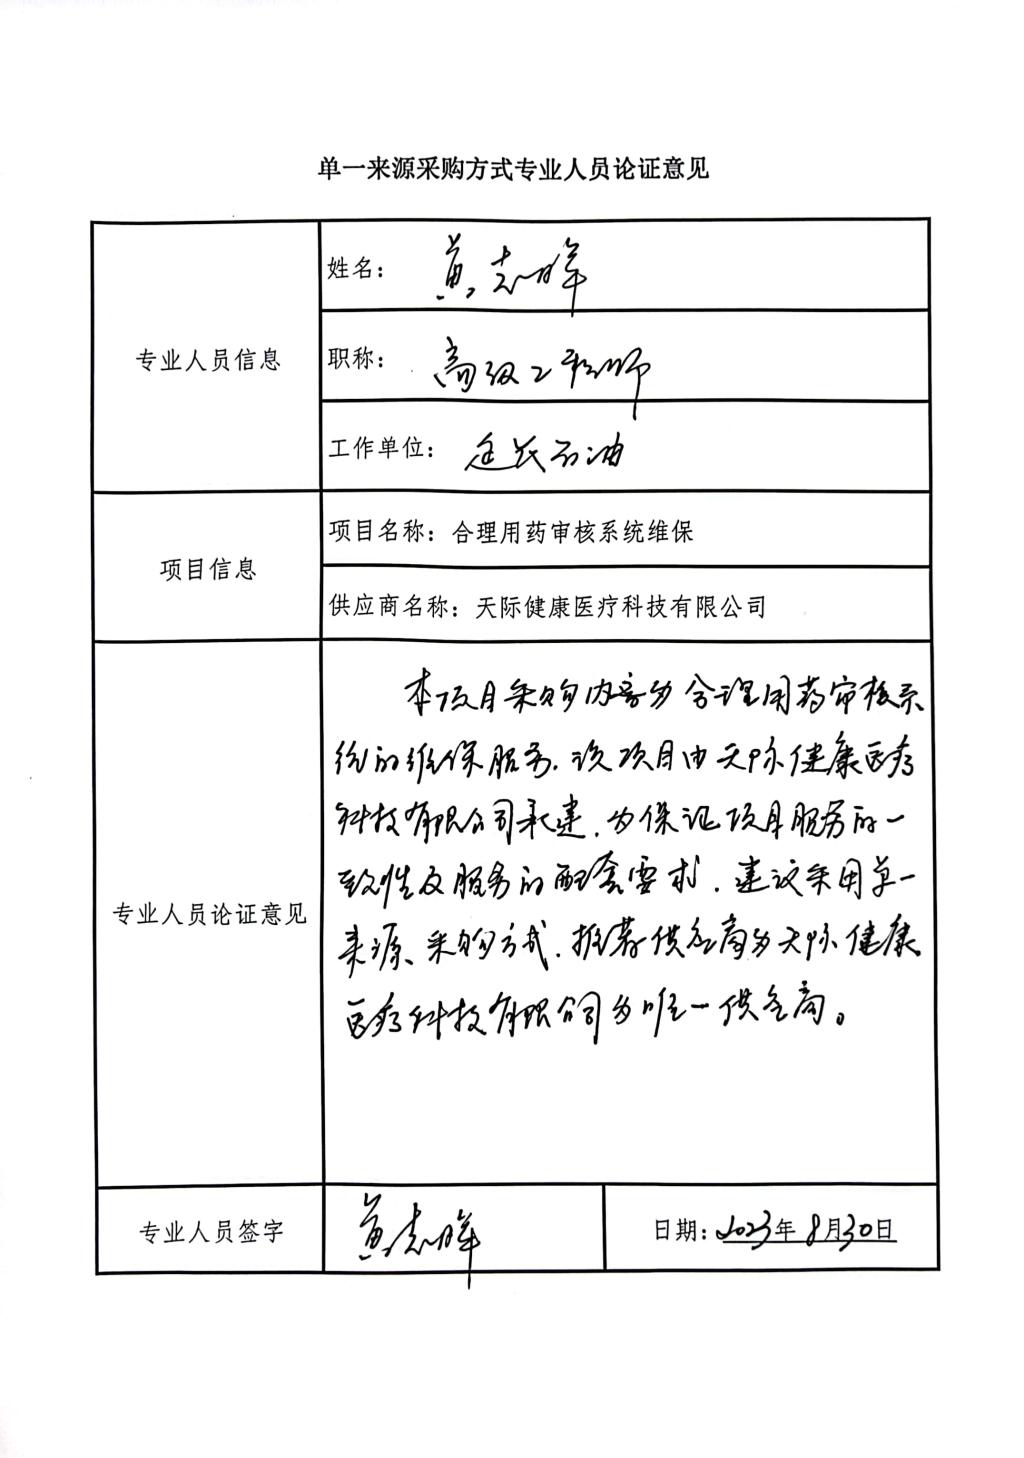 单一来源采购方式专业人员论证意见
专业人员信息
姓名： 黄志晖
职称： 高级工程师
工作单位： 延长石油
项目信息
项目名称：合理用药审核系统维保
供应商名称：天际健康医疗科技有限公司
专业人员论证意见
本项目采购内容为合理用药审核系
统的维保服务，该项目由天际健康医疗
科技有限公司承建，为保证项目服务的一
致性及服务的配套要求，建议采用单一
来源采购方式，推荐供应商为天际健康
医疗科技有限公司为唯一供应商。
专业人员签字
黄志晖
日期：2023年8月30日